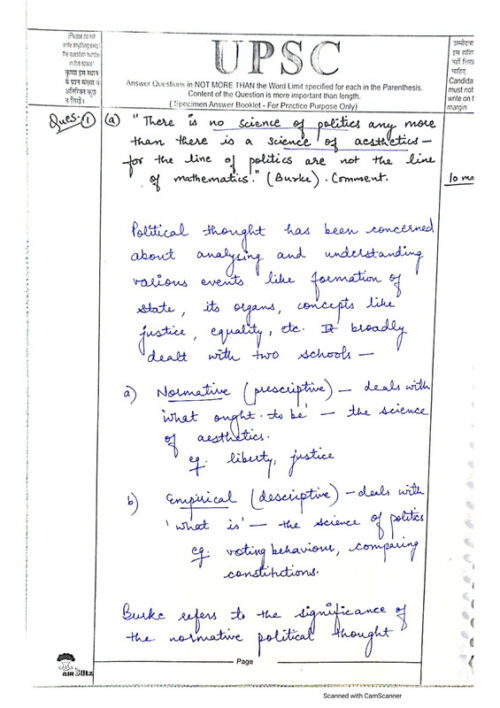 (Please do not
write anything except
the question number
in this space)
कृपया इस स्थान
में प्रश्न संख्या के
अतिरिक्त कुछ
न लिखें।
UPSC
Answer Questions in NOT MORE THAN the Word Limit specified for each in the Parenthesis.
Content of the Question is more important than length.
( Specimen Answer Booklet - For Practice Purpose Only)
उम्मीदवार
इस हाशिए
नहीं लिखना
चाहिए
Candida
must not
write on t
margin
Ques. 1 (a) "There is no science of politics any more
than there is a science of aesthetics —
for the line of politics are not the line
of mathematics." (Burke). Comment.
10 ma
Political thought has been concerned
about analysing and understanding
various events like formation of
state, its organs, concepts like
justice, equality, etc. It broadly
dealt with two schools —
a) Normative (prescriptive) — deals with
'what ought to be' — the science
of aesthetics.
eg. liberty, justice
b) Empirical (descriptive) — deals with
'what is' — the science of politics
eg: voting behaviour, comparing
constitutions.
Burke refers to the significance of
the normative political thought
Page
Scanned with CamScanner